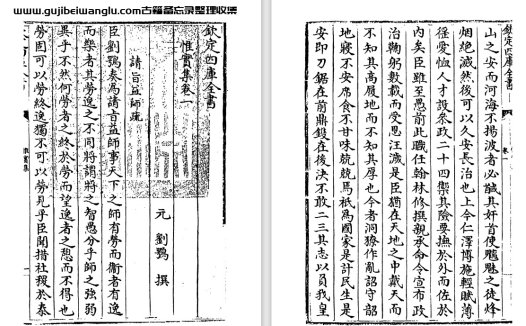 www.gujibeiwanglu.com古籍备忘录整理收集
欽定四庫全書
惟實集卷一
元 劉鶚 撰
請旨益師疏
臣劉鶚奏為請旨益師事天下之師有勞而衛者有逸
而樂者其勞逸之不同將謂將之智愚分乎師之強弱
異乎不然何勞者之終於勞而望逸者之憩而不得也
勞固可以勞終逸獨不可以勞見乎臣聞措社稷於泰
欽定四庫全書
山之安而河海不揚波者必馘其奸首使魑魅之徒烽
煙熄滅然後可以久安長治也上今仁澤博施輕賦薄
徭愛恤人才設參政二十四縶其險要撫於外而佐於
內矣臣雖至愚前此職任翰林修撰親承命令宣布政
治鞠躬數載而受恩汪濊是臣猶在天地之中戴天而
不知其高履地而不知其厚也今者洞獠作亂詔守韶
地寢不安席食不甘味兢兢焉祇為國家是計民生是
安即刀鋸在前鼎鑊在後決不敢二三其志以負我皇